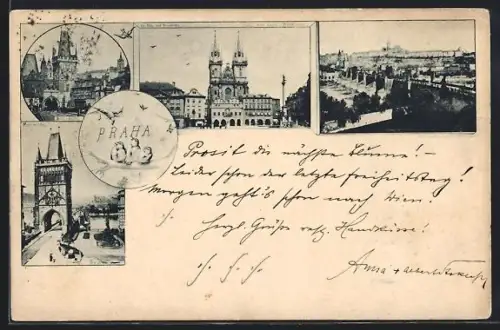 PRAHA
Prosit die nächste Blume! -
Leider schon der letzte Freiheitstag!
Morgen geht's schon nach Wien.
Herzl. Grüße Handküsse!
Anna +